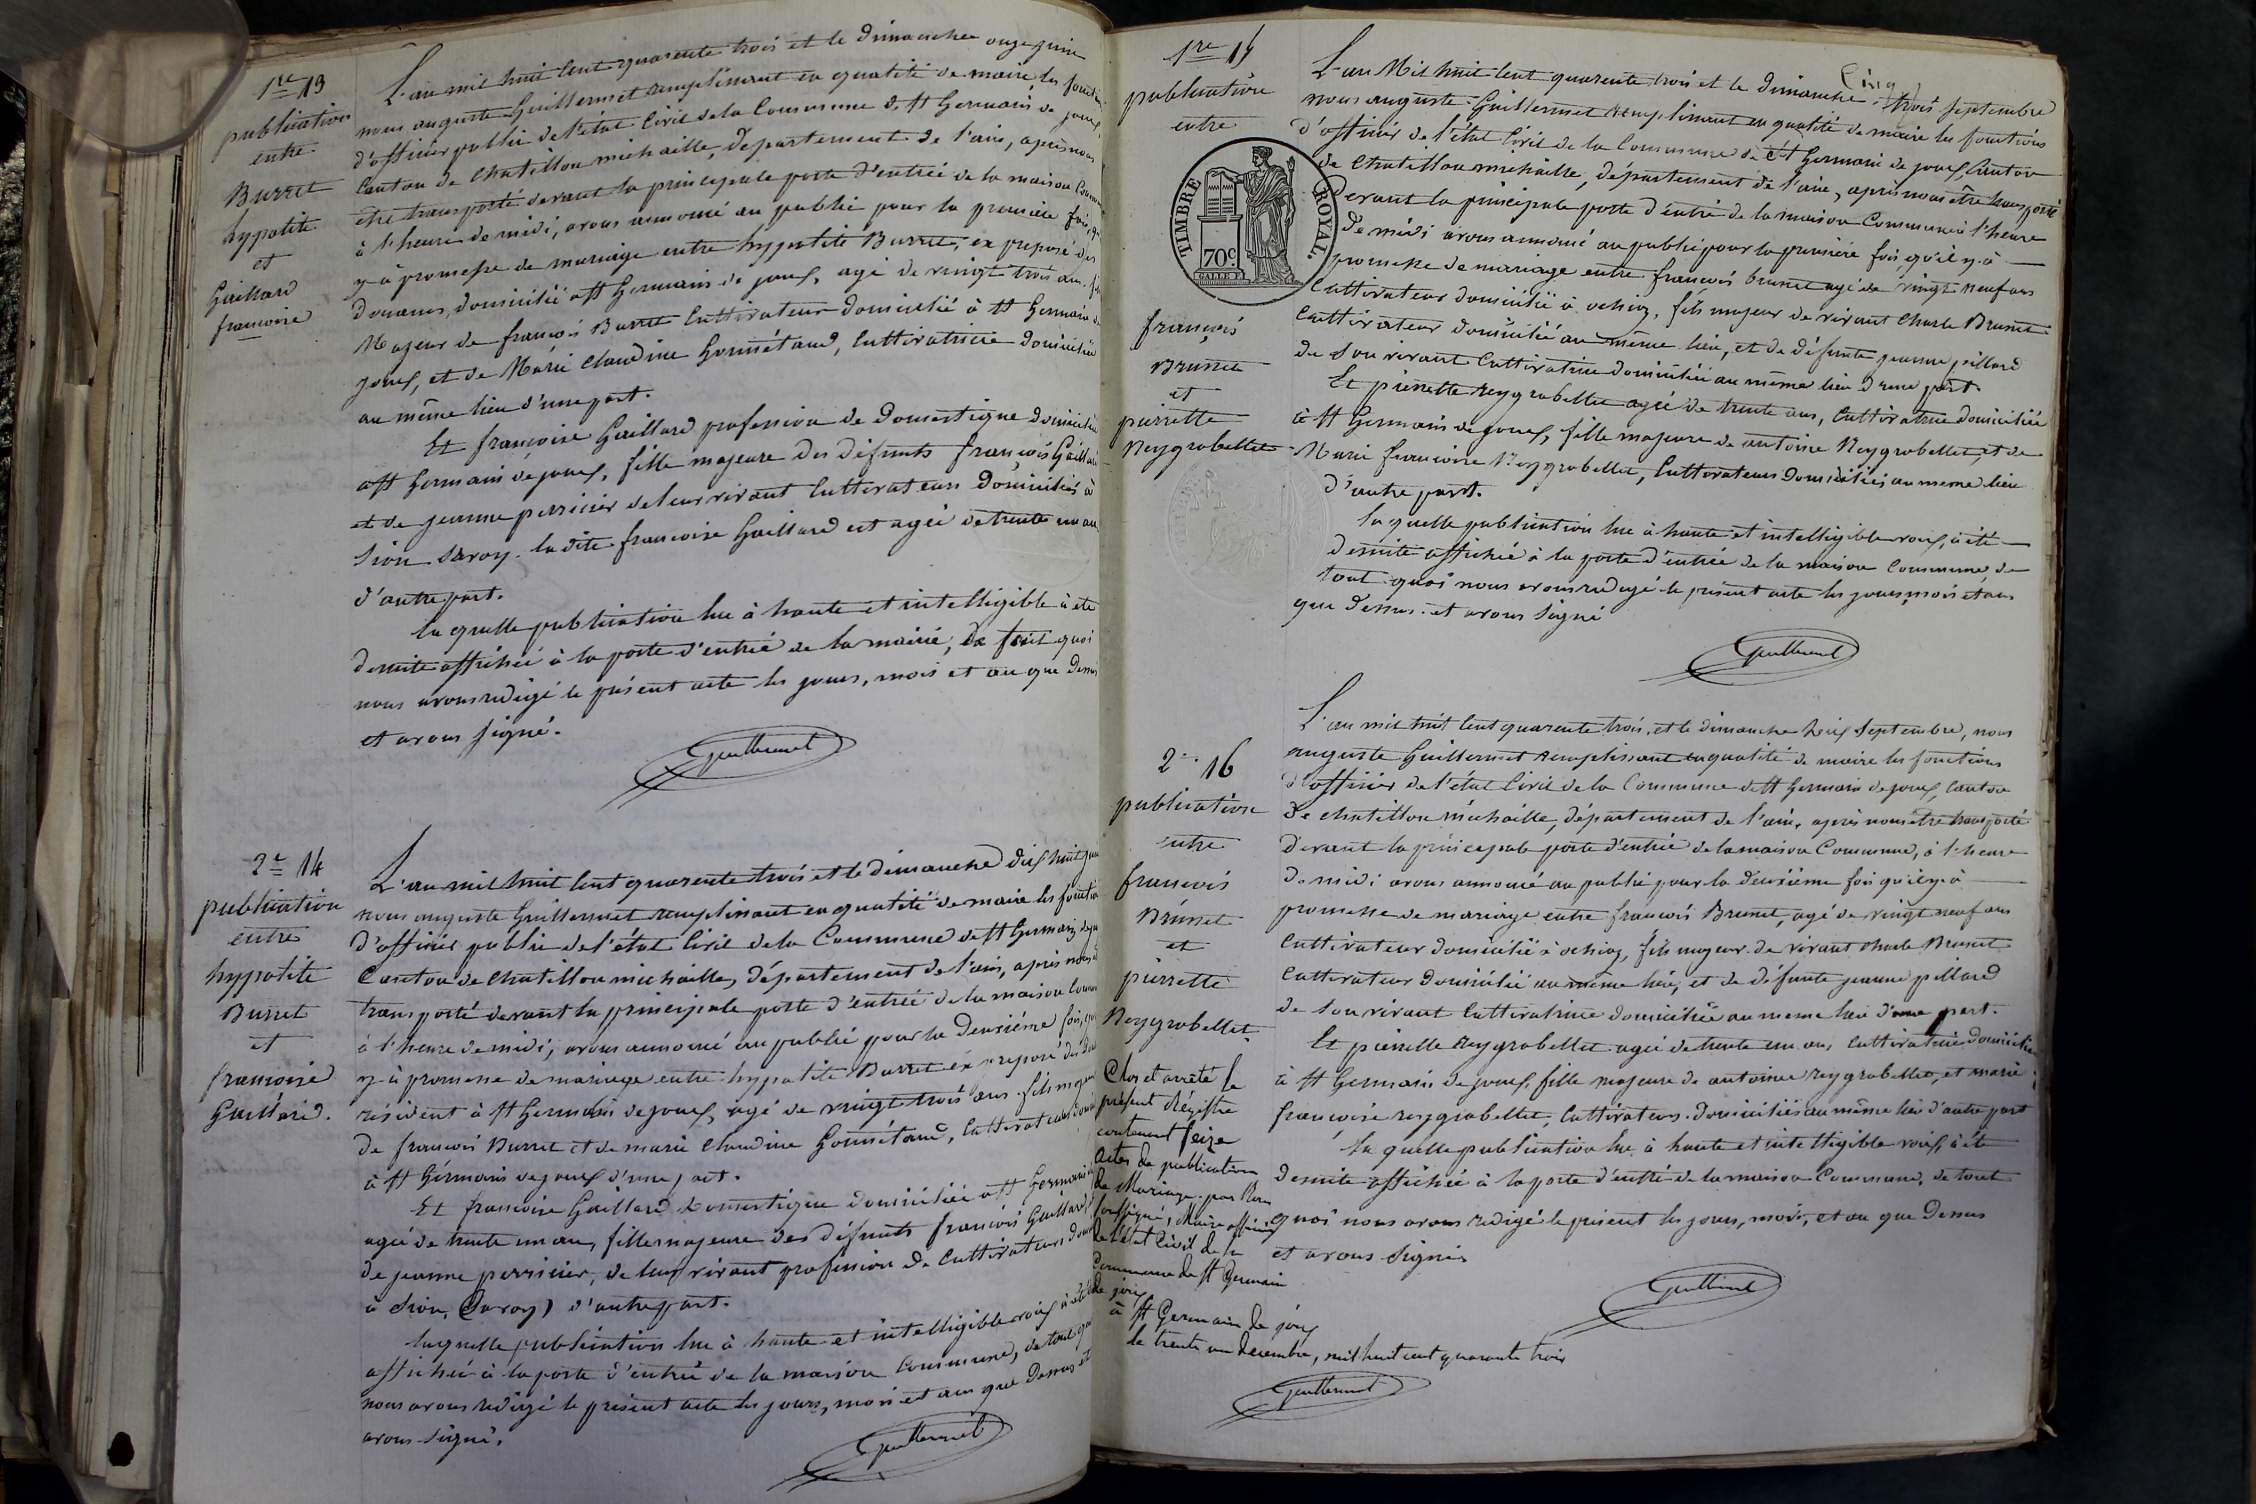 1re 13
publication
entre
Burret
hypolite
et
Gaillard
francoise
L'an mil huit cent quarente trois et le dimanche onze juin
nous auguste Guillermet remplissant en qualité de maire les fonctions
d'officier public de l'état Civil de la Commune de St Germain de joux,
Canton de Chatillon michaille, département de l'ain, apres nous
etre transporté devant la principale porte d'entrée de la maison Commune
à l'heure de midi, avons annoncé au public pour la première fois, qu'il
y a promesse de mariage entre hyppolite Burret, ex preposé des
douanes, domicilié a St Germain de joux, agé de vingt trois ans. fils
Majeur de françois Burret Cultivateur domicilié à St Germain de
joux, et de Marie Claudine Gonnétand, Cultivatrice domiciliée
au même lieu d'une part.
Et françoise Gaillard profession de domestique domiciliée
a St Germain de joux, fille majeure des défunts françois Gaillard
et de jeanne perricier de leur vivant Cultivateurs domiciliés à
Sion Savoy. la dite francoise Gaillard est agée de trente un an
d'autre part.
la quelle publication lue à haute et intelligible à été
de suite affichée à la porte d'entrée de la mairie, de tout quoi
nous avons redigé le présent acte les jours, mois et an que dessus
et avons signé.
Guillermet
2e 14
publication
entre
hypolite
Burret
et
francoise
Gaillard.
L'an mil huit cent quarente trois et le dimanche dix huit juin
nous auguste Guillermet remplissant en qualité de maire les fonctions
d'officier public de l'état Civil de la Commune de St Germain de joux
Canton de Chatillon michaille, département de l'ain, après nous être
transporté devant la principale porte d'entrée de la maison Commune
à l'heure de midi, avons annoncé au public pour la deuxième fois, qu'il
y a promesse de mariage entre hypolite Burret ex preposé des douanes
résident à St Germain de joux, agé de vingt trois ans. fils majeur
de francois Burret et de marie Claudine Gonnétand, Cultivateurs
à St Germain de joux d'une part.
Et francoise Gaillard domestique domiciliée a St Germain
agée de trente un an, fille majeure des défunts francois Gaillard et
de jeanne perricier, de leur vivant profession de Cultivateurs
à Sion, (Savoy) d'autre part.
laquelle publication lue à haute et intelligible voix à été
affichée à la porte d'entrée de la maison Commune, de tout quoi
nous avons redigé le présent acte les jours, mois et an que dessus et
avons signé.
Guillermet
1re 15
publication
entre
TIMBRE ROYAL.
70c
françois
Brunet
et
pierrette
Reygrobellet
Cinq
L'an Mil huit cent quarente trois et le dimanche trois Septembre
nous auguste Guillermet remplissant en qualité de maire les fonctions
d'officier de l'état Civil de la Commune de St Germain de joux, Canton
de Chatillon michaille, département de l'ain, après nous être transporté
devant la principale porte d'entré de la maison Commune à l'heure
de midi avons annoncé au public pour la première fois qu'il y à
promesse de mariage entre francois brunet agé de vingt neuf ans
Cultivateur domicilié à ochiaz, fils majeur de vivant Charle Brunet
Cultivateur domicilié au même lieu, et de défunte jeanne pillard
de son vivant Cultivatrice domiciliée au même lieu d'une part.
Et pierrette Reygrobellet agée de trente ans, Cultivatrice domiciliée
à St Germain de joux, fille majeure de antoine Reygrobellet, et de
Marie francoise Reygrobellet, Cultivateurs domiciliés au meme lieu
d'autre part.
la quelle publication lue à haute et intelligible voix, à été
de suite affichée à la porte d'entrée de la maison Commune, de
tout quoi nous avons redigé le présent acte les jours, mois et an
que dessus. et avons signé
Guillermet
2e 16
publication
entre
francois
Brunet
et
pierrette
Reygrobellet
L'an mil huit cent quarente trois, et le dimanche dix Septembre, nous
auguste Guillermet remplissant en qualité de maire les fonctions
d'officier de l'état Civil de la Commune de St Germain de joux, Canton
de Chatillon michaille, département de l'ain, après nous être transporté
devant la principale porte d'entrée de la maison Commune, à l'heure
de midi avons annoncé au public pour la deuxième fois qu'il y à
promesse de mariage entre francois Brunet, agé de vingt neuf ans
Cultivateur domicilié à ochiaz, fils majeur de vivant Charle Brunet
Cultivateur domicilié au même lieu, et de défunte jeanne pillard
de son vivant Cultivatrice domiciliée au meme lieu d'une part.
Et pierrette Reygrobellet agée de trente un ans, Cultivatrice domiciliée
à St Germain de joux, fille majeure de antoine reygrobellet, et marie
françoise reygrobellet, Cultivateurs domiciliés au même lieu d'autre part
la quelle publication lue à haute et intelligible voix, à été
de suite affichée à la porte d'entrée de la maison Commune, de tout
quoi nous avons redigé le présent les jours, mois, et an que dessus
et avons signé
Guillermet
Clos et arrêté le
present Régistre
contenant seize
actes de publication
de Mariage par Nous
soussigné, Maire officier
de l'état Civil de la
Commune de St Germain
de joux
à St Germain de joux
le trente un decembre, mil huit cent quarante trois
Guillermet